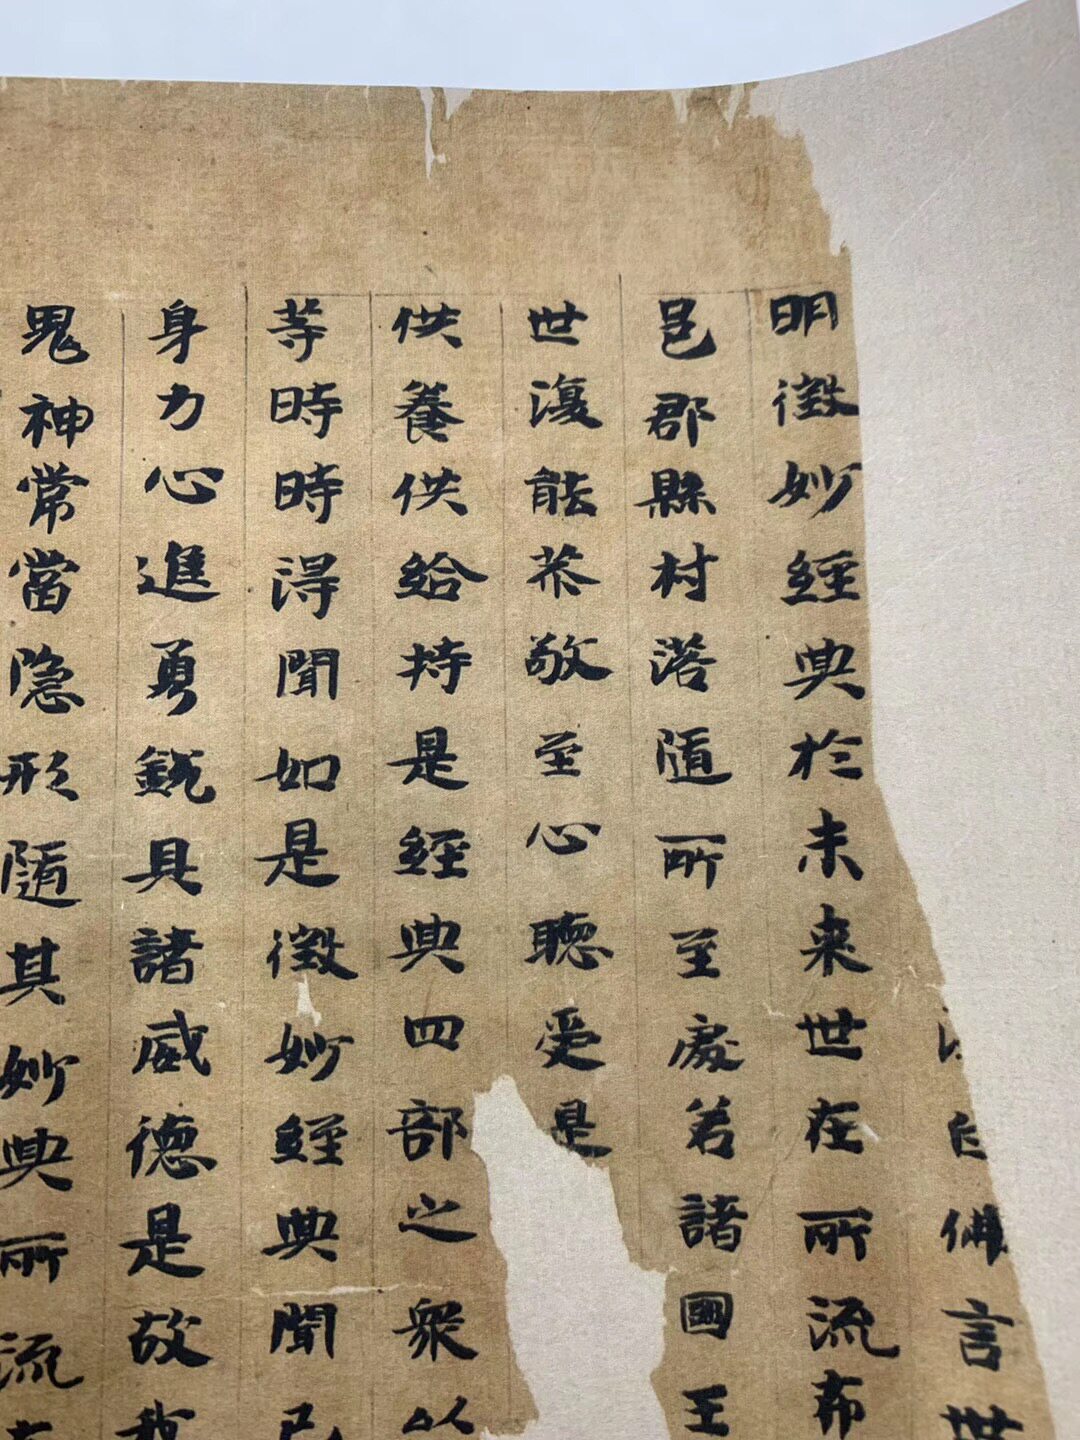 白佛言世
明微妙經典於未来世在所流布
邑郡縣村落随所至處若諸國王
世復能恭敬至心聽受是
供養供給持是經典四部之衆以
等時時得聞如是微妙經典聞已
身力心進勇銳具諸威德是故我
鬼神常當隐形随其妙典所流布